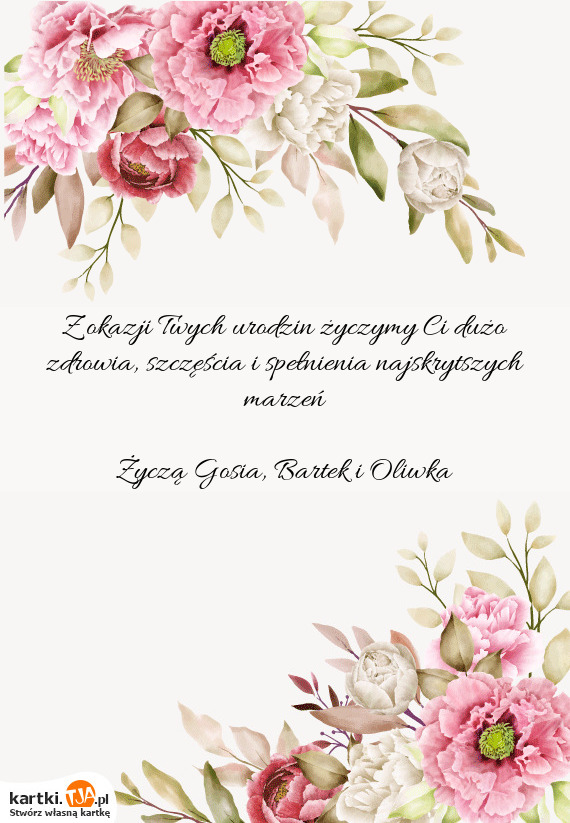 Z okazji Twych urodzin życzymy Ci dużo
zdrowia, szczęścia i spełnienia najskrytszych
marzeń
Życzą Gosia, Bartek i Oliwka
kartki.TJA.pl
Stwórz własną kartkę